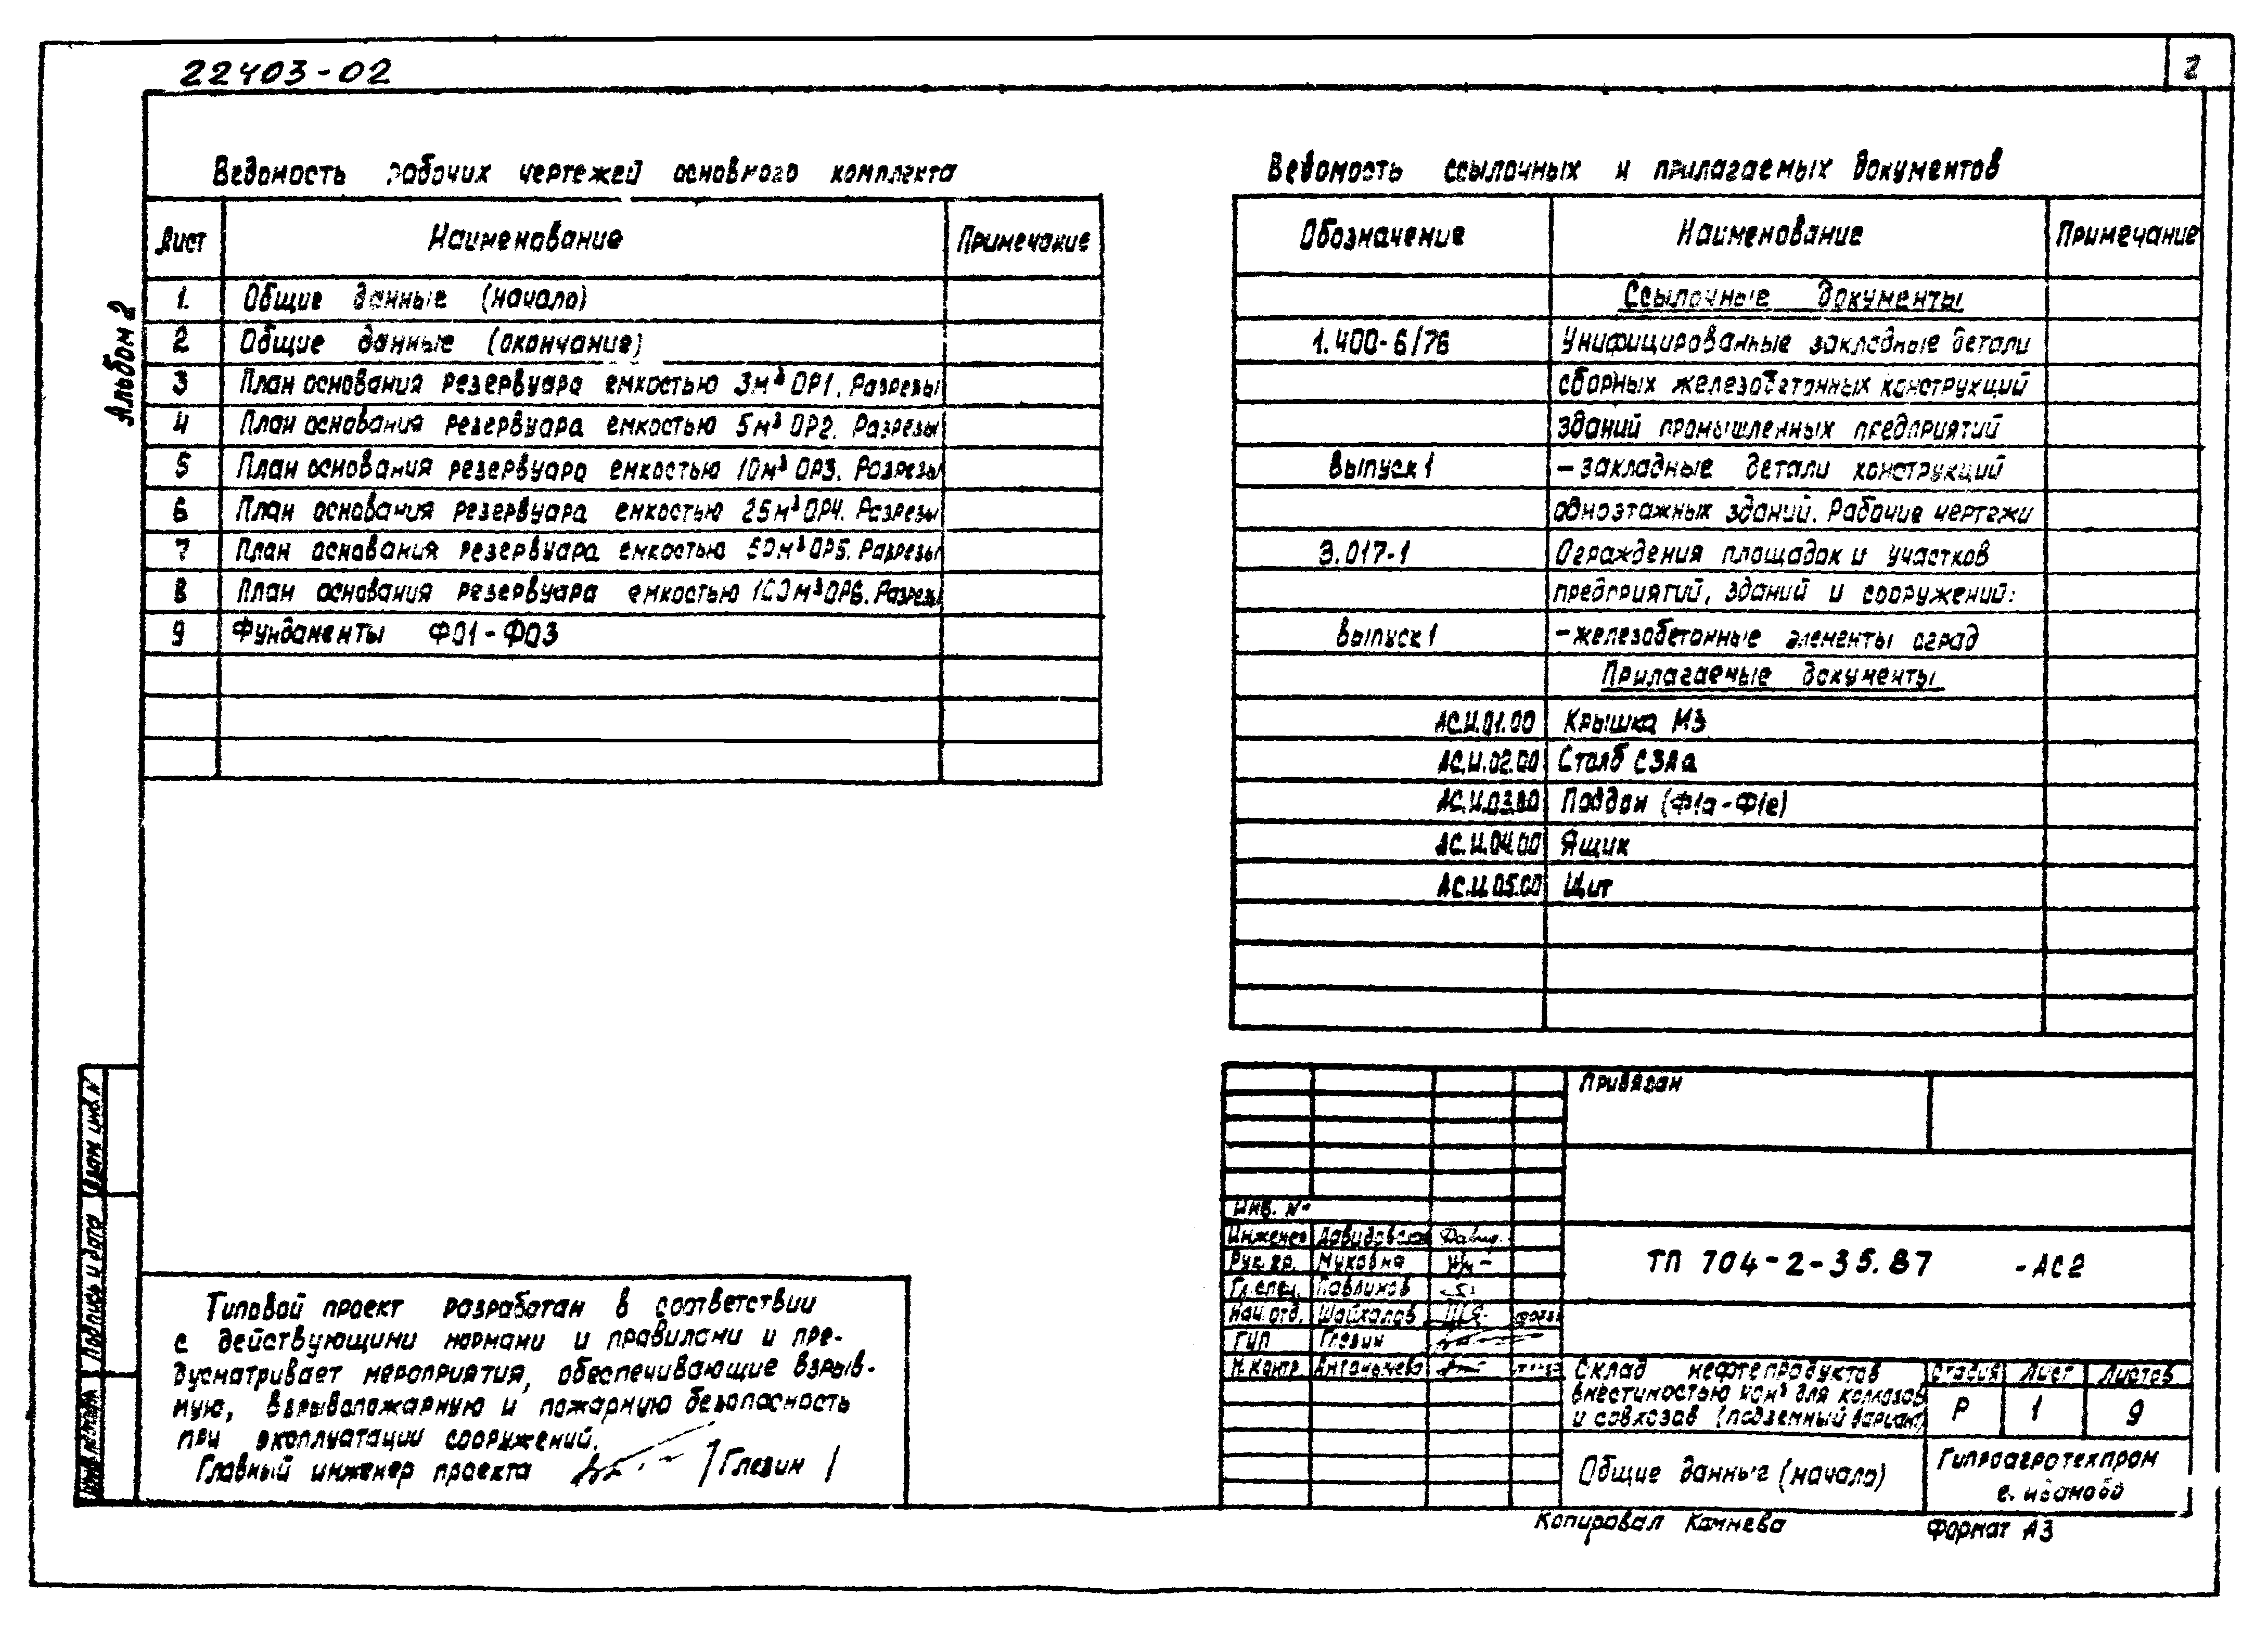 22403-02
2
Альбом 2
Ведомость рабочих чертежей основного комплекта
Лист Наименование Примечание
1. Общие данные (начало)
2 Общие данные (окончание)
3 План основания резервуара емкостью 3м³ ОР1. Разрезы
4 План основания резервуара емкостью 5м³ ОР2. Разрезы
5 План основания резервуара емкостью 10м³ ОР3. Разрезы
6 План основания резервуара емкостью 25м³ ОР4. Разрезы
7 План основания резервуара емкостью 50м³ ОР5. Разрезы
8 План основания резервуара емкостью 100м³ ОР6. Разрезы
9 Фундаменты Ф01-Ф03
Ведомость ссылочных и прилагаемых документов
Обозначение Наименование Примечание
Ссылочные документы
1.400-6/76 Унифицированные закладные детали
сборных железобетонных конструкций
зданий промышленных предприятий
Выпуск 1 - закладные детали конструкций
одноэтажных зданий. Рабочие чертежи
3.017-1 Ограждения площадок и участков
предприятий, зданий и сооружений:
Выпуск 1 - железобетонные элементы оград
Прилагаемые документы
АС.И.01.00 Крышка М3
АС.И.02.00 Столб С3Аа
АС.И.03.00 Поддон (Ф1а-Ф1е)
АС.И.04.00 Ящик
АС.И.05.00 Щит
Взам. инв. №
Подпись и дата
Типовой проект разработан в соответствии
с действующими нормами и правилами и пре-
дусматривает мероприятия, обеспечивающие взрыв-
ную, взрывопожарную и пожарную безопасность
при эксплуатации сооружений.
Главный инженер проекта /Глезин/
Привязан
Инв. №
Инженер Давидовская
Рук. гр. Муковня
Гл. спец. Павликов
Нач. отд. Шайхалов
ГИП Глезин
Н. контр. Антонычева
ТП 704-2-35.87 -АС2
Склад нефтепродуктов
вместимостью м³ для колхозов
и совхозов (подземный вариант)
Стадия Лист Листов
Р 1 9
Общие данные (начало)
Гипроагротехпром
г. Иваново
Копировал Камнева
Формат А3